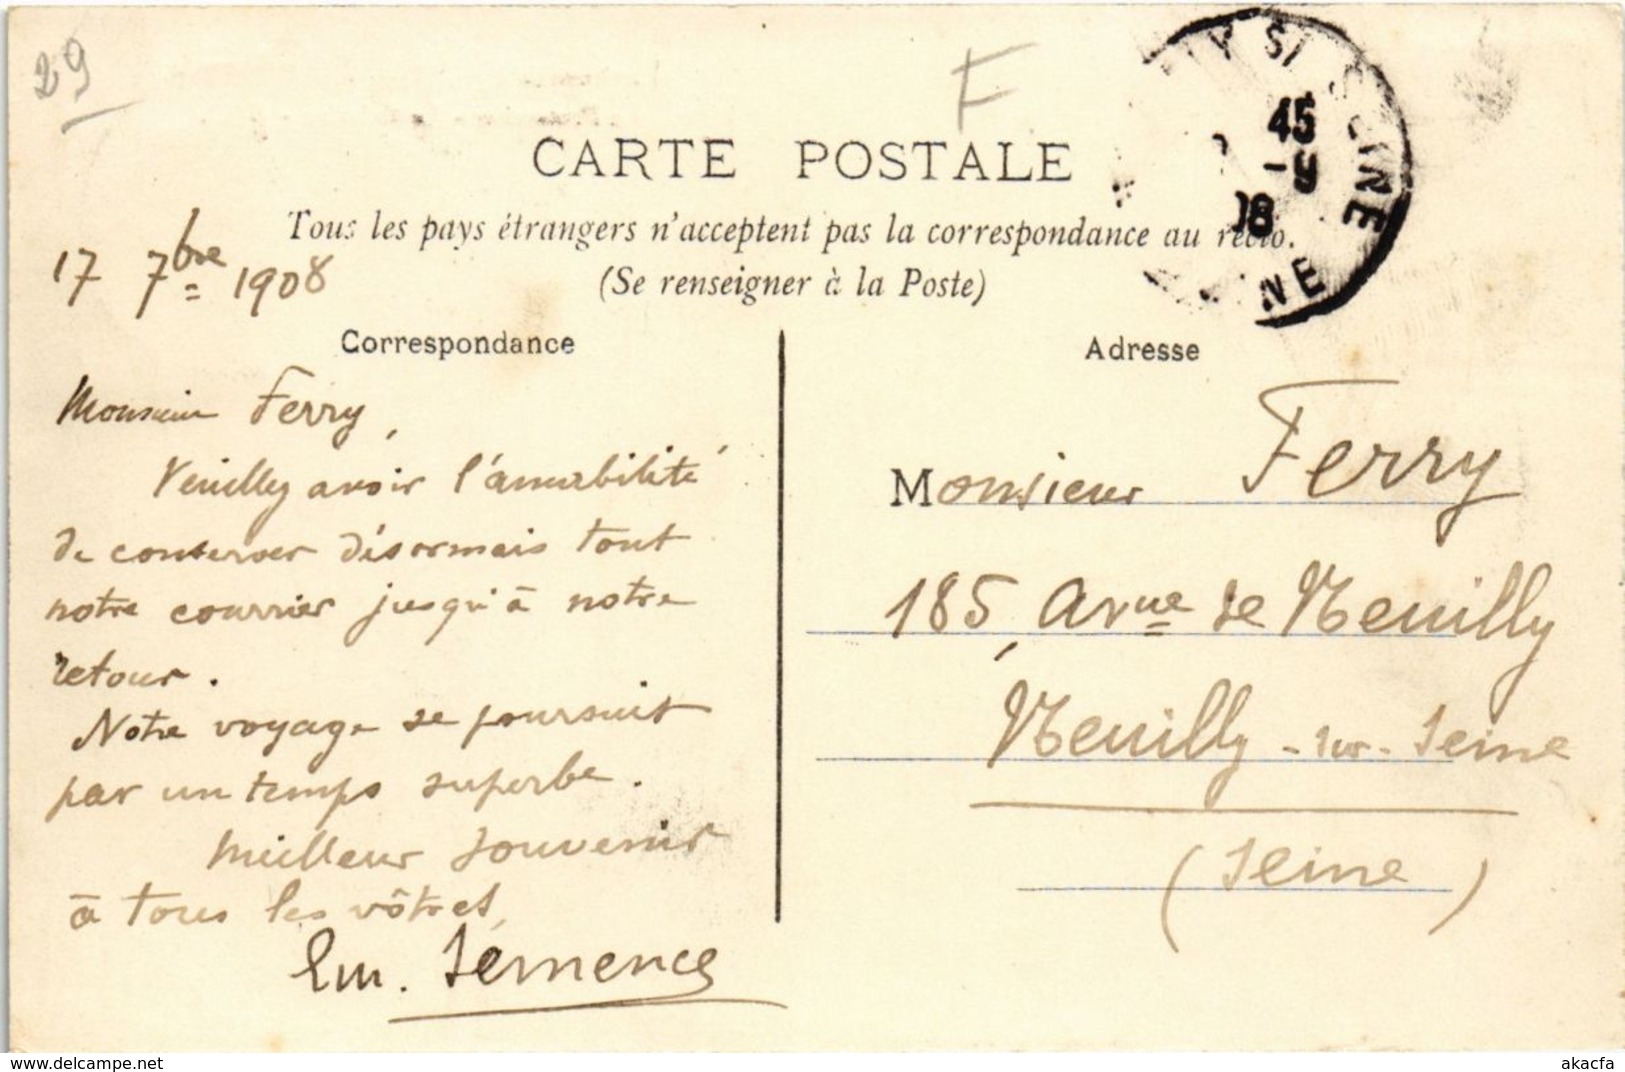 29
F
CARTE POSTALE
Tous les pays étrangers n'acceptent pas la correspondance au recto.
(Se renseigner à la Poste)
17 7bre 1908
45
-9
08
SEINE
NE
Correspondance
Monsieur Ferry,
Veuillez avoir l'amabilité
de conserver désormais tout
notre courrier jusqu'à notre
retour.
Notre voyage se poursuit
par un temps superbe.
Meilleur souvenir
à tous les vôtres,
Em. Semence
Adresse
Monsieur Ferry
185, Avnue de Neuilly
Neuilly-sur-Seine
(Seine)
www.delcampe.net
akacfa